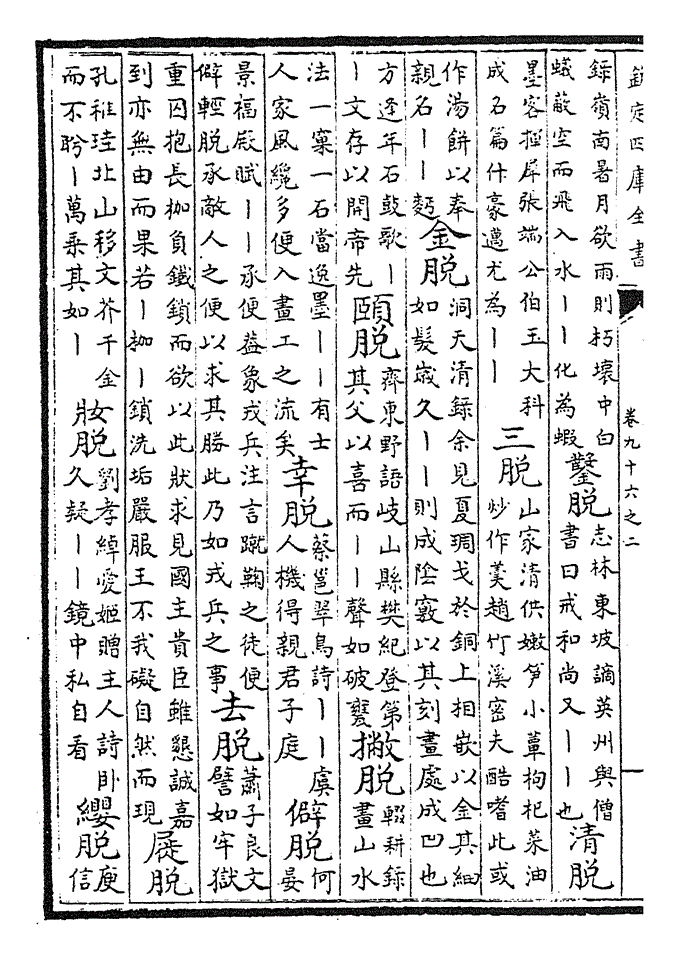 欽定四庫全書
卷九十六之二
一
錄嶺南暑月欲雨則朽壞中白
蟻蔽空而飛入水丨丨化為蝦
鑿脱
志林東坡謫英州與僧
書曰戒和尚又丨丨也
清脱
墨客揮犀張端公伯玉大科
成名篇什豪邁尤為丨丨
三脱
山家清供嫩笋小蕈枸杞菜油
炒作羮趙竹溪密夫酷嗜此或
作湯餅以奉
親名丨丨麪
金脱
洞天清録余見夏琱戈於銅上相嵌以金其細
如髮嵗久丨丨則成陰竅以其刻畫處成凹也
方逢年石鼓歌丨
丨文存以開帝先
頤脱
齊東野語岐山縣樊紀登第
其父以喜而丨丨聲如破甕
撇脱
輟耕録
畫山水
法一窠一石當逸墨丨丨有士
人家風纔多便入畫工之流矣
幸脱
蔡邕翠鳥詩丨丨虞
人機得親君子庭
僻脱
何
晏
景福殿賦丨丨承便葢象戎兵注言蹴鞠之徒便
僻輕脱承敵人之便以求其勝此乃如戎兵之事
去脱
蕭子良文
譬如牢獄
重囚抱長枷負鐵鎖而欲以此狀求見國主貴臣雖懇誠嘉
到亦無由而果若丨枷丨鎖洗垢嚴服王不我礙自然而現
屣脱
孔稚珪北山移文芥千金
而不盻丨萬乘其如丨
妝脱
劉孝綽愛姬贈主人詩卧
久疑丨丨鏡中私自看
纓脱
庾
信